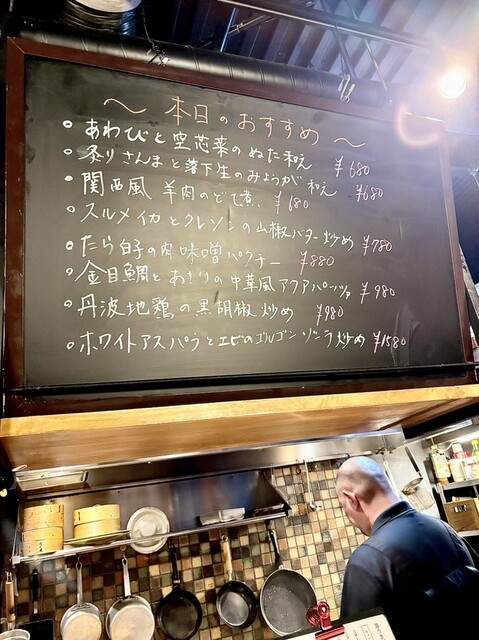 ～ 本日のおすすめ ～
○ あわびと空芯菜のぬた和え ¥680
○ 炙りさんまと落下生のみょうが和え ¥680
○ 関西風 羊肉のどて煮、¥680
○ スルメイカとクレソンの山椒バター炒め ¥780
○ たら白子の肉味噌パクチー ¥880
○ 金目鯛とあさりの中華風アクアパッツァ ¥980
○ 丹波地鶏の黒胡椒炒め ¥980
○ ホワイトアスパラとエビのゴルゴンゾーラ炒め ¥1580